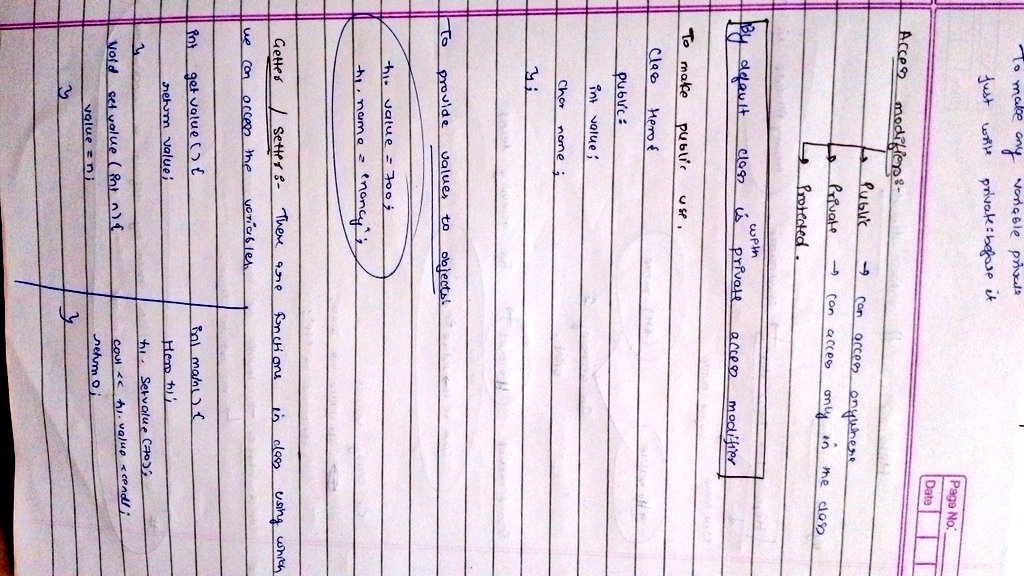 To make any variable private
just write private: before it
Page No.
Date
Access modifiers:-
Public → can access anywhere
Private → can access only in the class
Protected.
By default class is with private access modifier
To make public use,
Class Hero{
public:
int value;
char name;
};
To provide values to objects!
h1. value = 700;
h1. name = 'nancy';
Getter / Setter:- These are functions in class using which
we can access the variables.
int get value () {
return value;
}
void set value (int n) {
value = n;
}
int main() {
Hero h1;
h1. Setvalue (70);
cout << h1.value <<endl;
return 0;
}